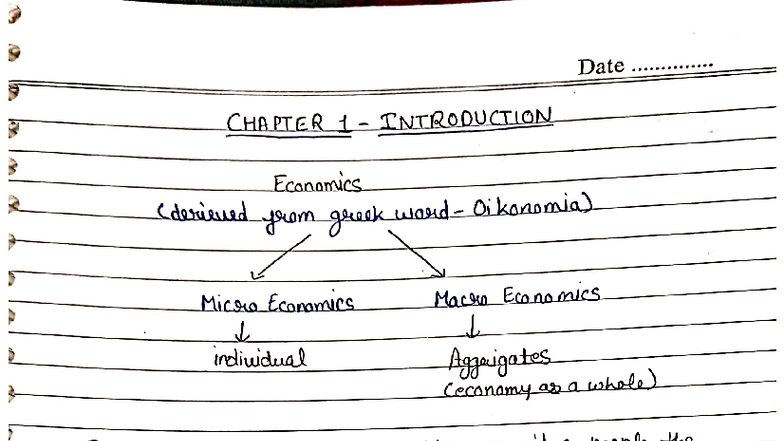 Date ..............
CHAPTER 1 - INTRODUCTION
Economics
(derieved from greek word - Oikonomia)
Micro Economics Macro Economics
individual Aggrigates
(economy as a whole)